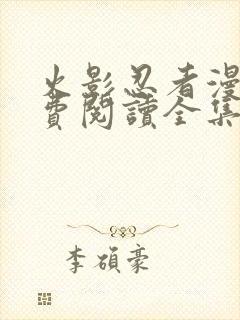 火影忍者漫
費閱讀全集
李碩豪